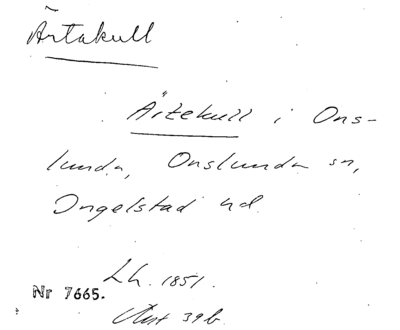 Ärtakull
Äitekull i Ons-
lunda, Onslunda sn,
Ingelstad hd.
Lh. 1851.
Nr 7665.
39b.